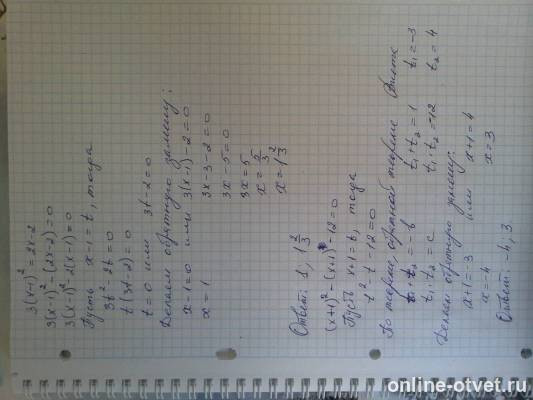 3(x-1)² = 2x-2
3(x-1)² - (2x-2) = 0
3(x-1)² - 2(x-1) = 0
Пусть x-1=t, тогда
3t² - 2t = 0
t(3t-2) = 0
t=0 или 3t-2=0
Делаем обратную замену:
x-1=0 или 3(x-1)-2=0
x=1 3x-3-2=0
3x-5=0
3x=5
x=5/3
x=1 2/3
Ответ: 1, 1 2/3
(x+1)² - (x+1) - 12=0
Пусть x+1=t, тогда
t² - t - 12=0
По теореме, обратной теореме Виета
t₁+t₂ = -b t₁+t₂ = 1 t₁=-3
t₁·t₂ = c t₁·t₂ = -12 t₂=4
Делаем обратную замену:
x+1=-3 или x+1=4
x=-4 x=3
Ответ: -4, 3
online-otvet.ru